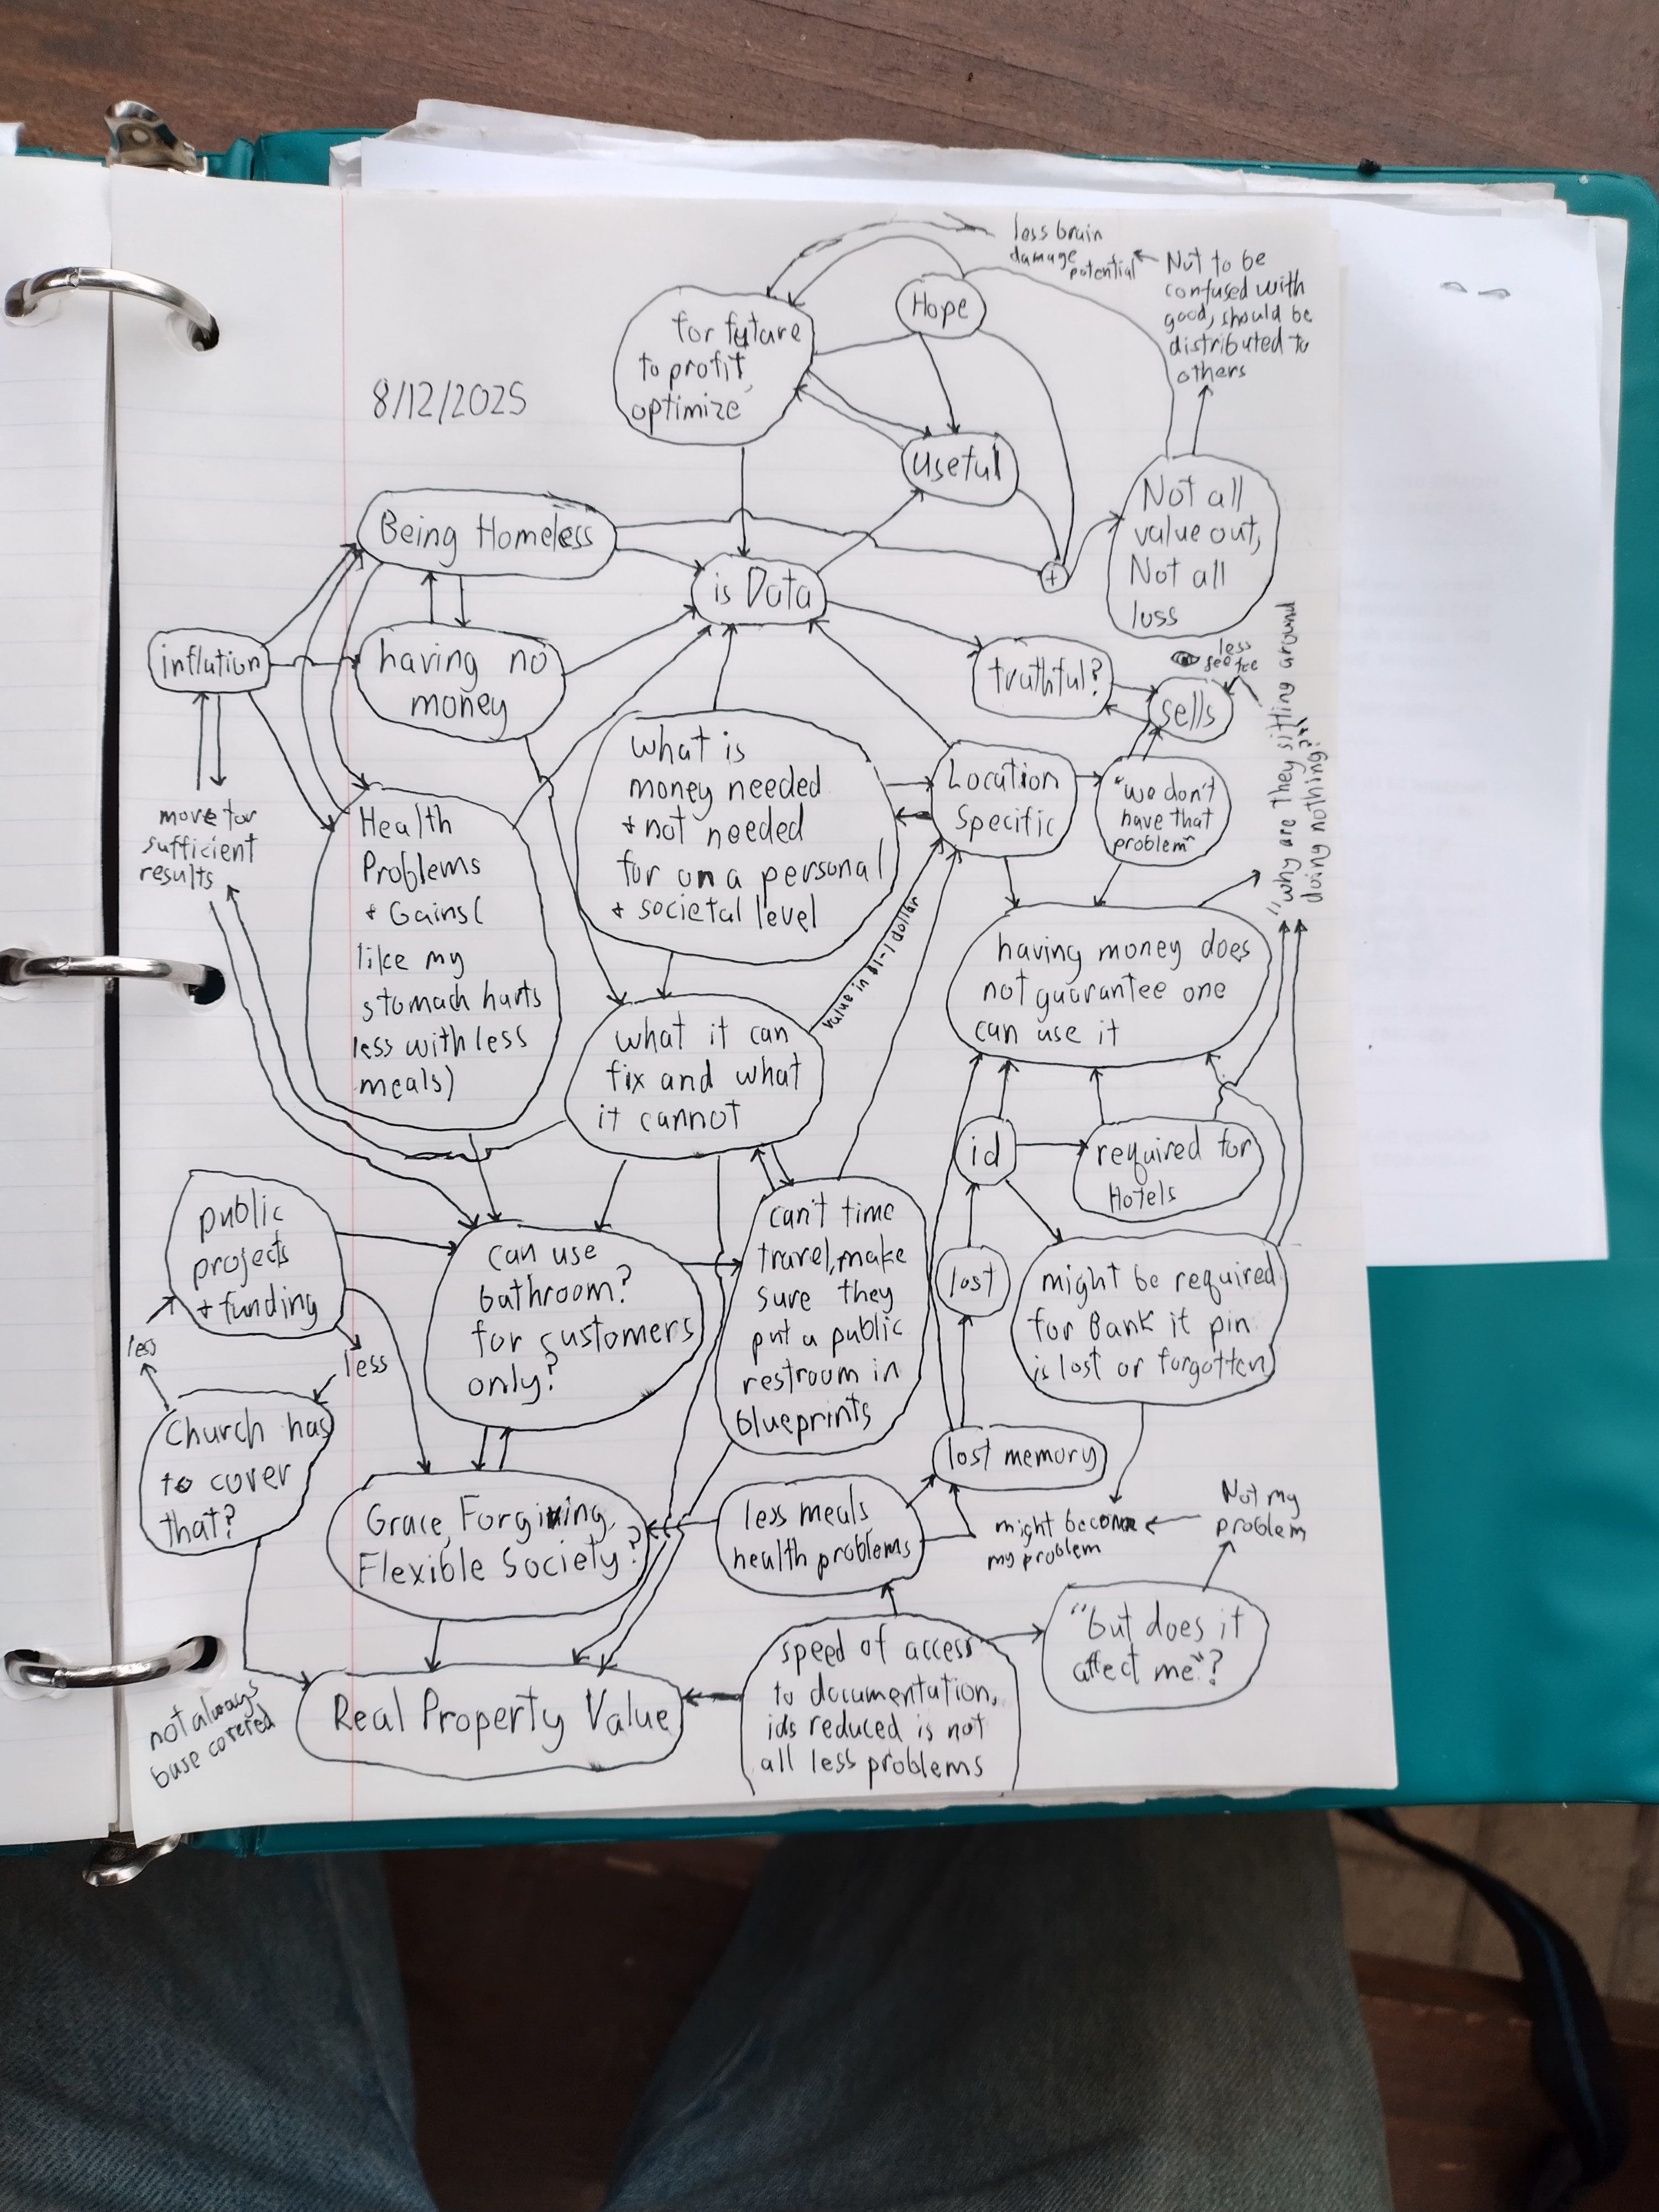 less brain
damage
potential
Not to be
confused with
good, should be
distributed to
others
Hope
for future
to profit,
optimize
8/12/2025
useful
Not all
value out,
Not all
loss
Being Homeless
is Data
+
inflation
having no
money
truthful?
less
sells
"why are they sitting around
doing nothing?"
what is
money needed
+ not needed
for on a personal
+ societal level
Location
Specific
"we don't
have that
problem"
move for
sufficient
results
Health
Problems
+ Gains(
like my
stomach hurts
less with less
meals)
value in $1-1 dollar
having money does
not guarantee one
can use it
what it can
fix and what
it cannot
id
required for
Hotels
public
projects
+ funding
can use
bathroom?
for customers
only?
can't time
travel, make
sure they
put a public
restroom in
blueprints
lost
might be required
for Bank if pin
is lost or forgotten
less
less
Church has
to cover
that?
lost memory
Grace, Forgiving,
Flexible Society?
less meals
health problems
might become
my problem
Not my
problem
"but does it
affect me"?
speed of access
to documentation,
ids reduced is not
all less problems
Real Property Value
not always
base covered